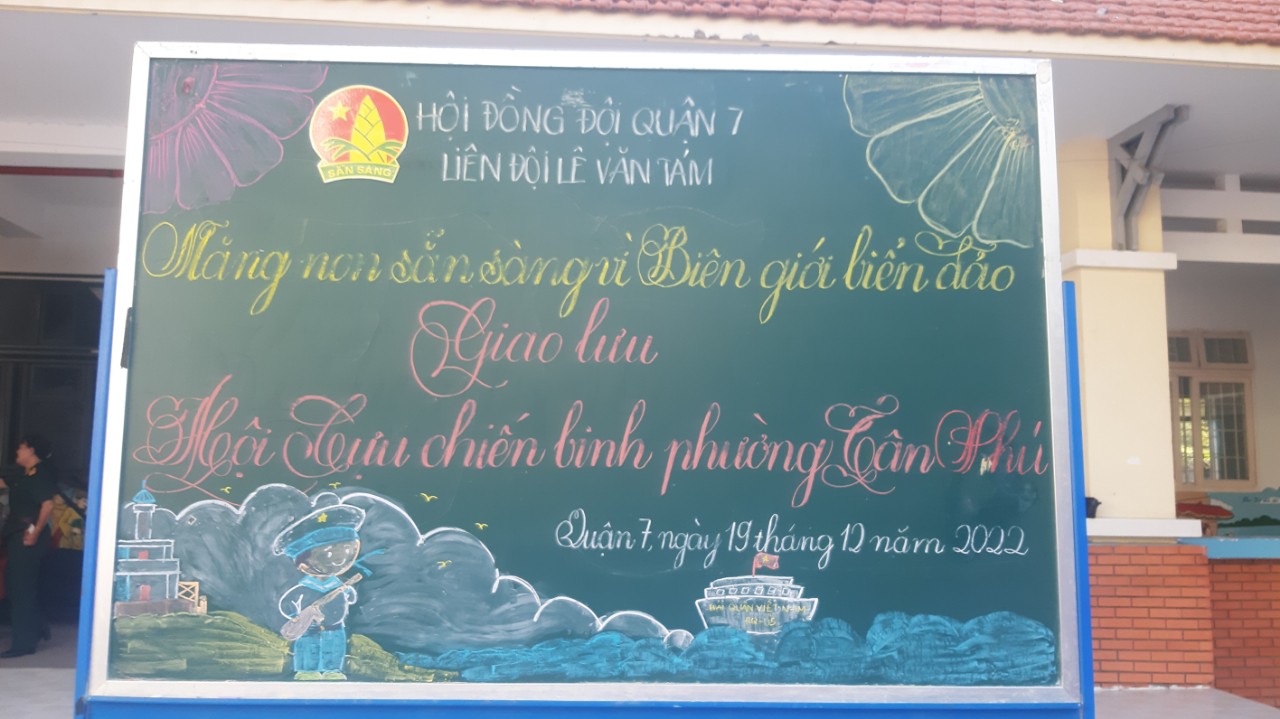 HỘI ĐỒNG ĐỘI QUẬN 7
LIÊN ĐỘI LÊ VĂN TÁM
SẴN SÀNG
Măng non sẵn sàng vì Biên giới biển đảo
Giao lưu
Hội Cựu chiến binh phường Tân Phú
Quận 7, ngày 19 tháng 12 năm 2022
HẢI QUÂN VIỆT NAM